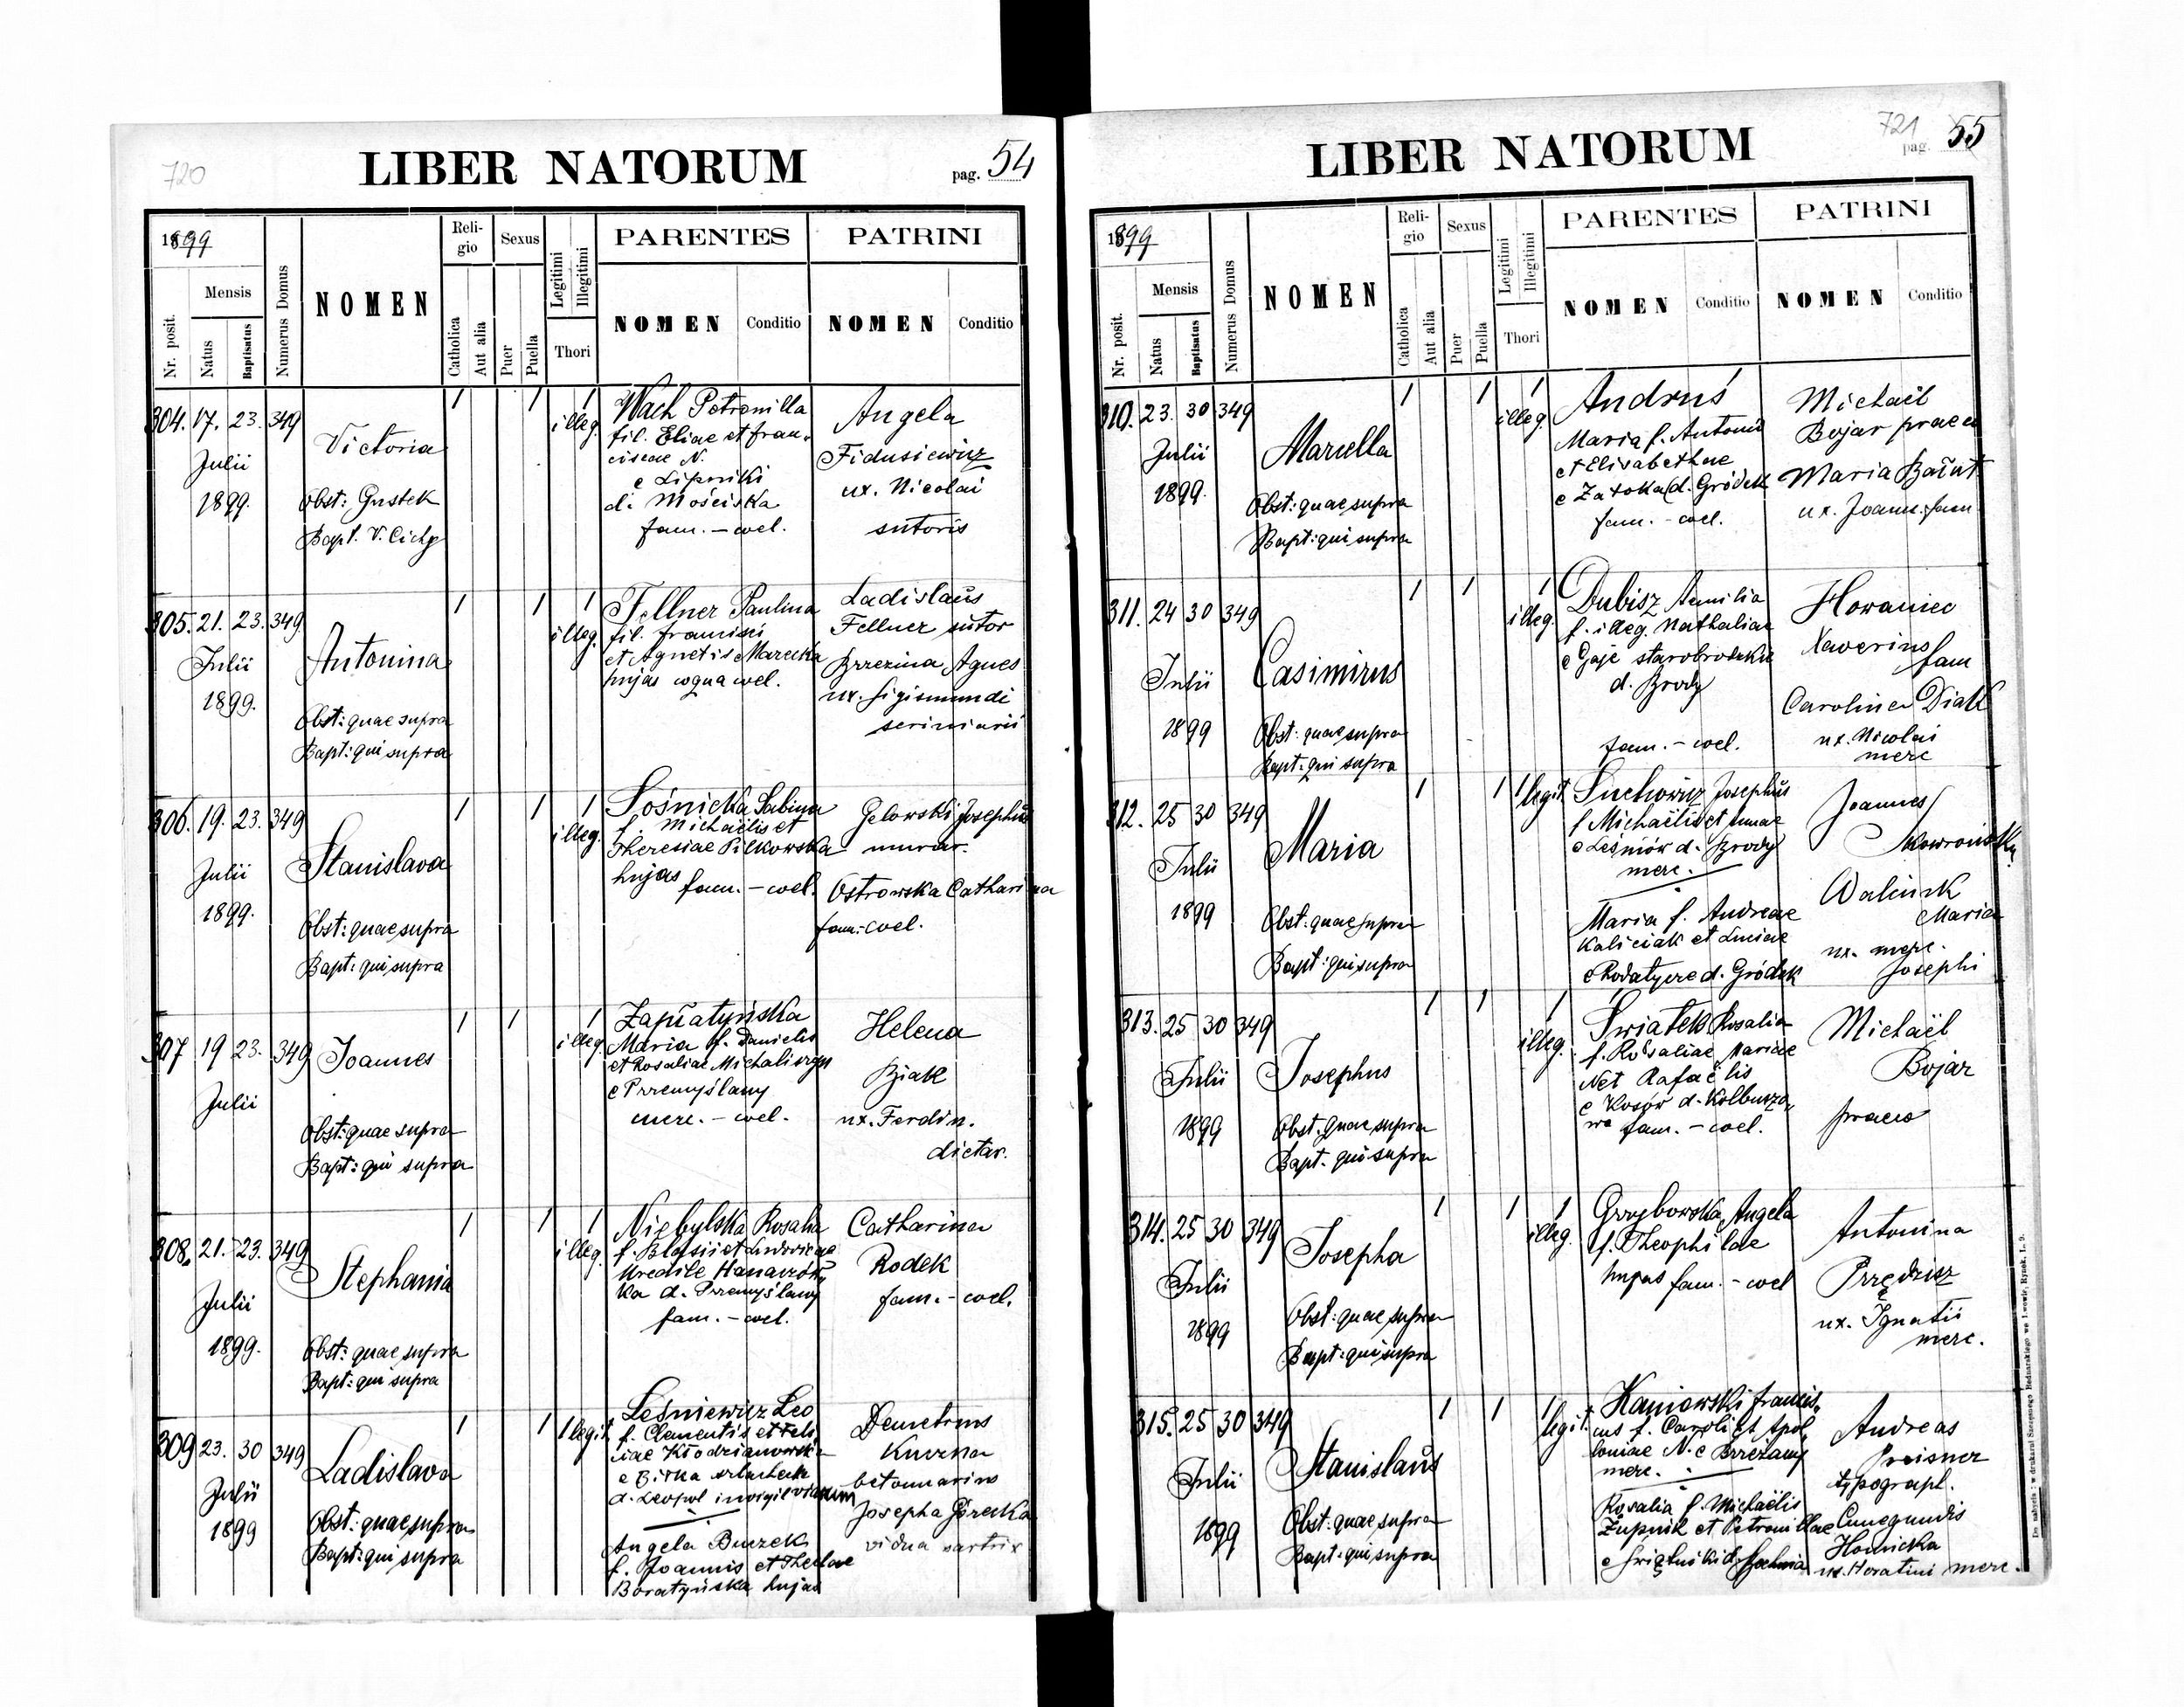 720
LIBER NATORUM
pag. 54
1899
Nr. posit.
Mensis
Natus
Baptisatus
Numerus Domus
NOMEN
Religio
Catholica
Aut alia
Sexus
Puer
Puella
Legitimi
Illegitimi
Thori
PARENTES
NOMEN
Conditio
PATRINI
NOMEN
Conditio
304. 17. 23. 349
Julii
1899.
Victoria
Obst: Gustek
Bapt. V. Cichy
illeg.
Wach Petronilla
fil. Eliae et Fran-
ciscae N.
e Lipniki
d. Mościska
fam. - coel.
Angela
Fidusiewicz
ux. Nicolai
sutoris
305. 21. 23. 349
Julii
1899.
Antonina
Obst: quae supra
Bapt: qui supra
illeg.
Fellner Paulina
fil. Francisci
et Agnetis Marecka
hujas coqua coel.
Ladislaus
Fellner sutor
Brzezina Agnes
ux. Sigismundi
scriniarii
306. 19. 23. 349
Julii
1899.
Stanislava
Obst: quae supra
Bapt: qui supra
illeg.
Sośnicka Sabina
f. Michaëlis et
Theresiae Pilkowska
hujas fam. - coel.
Gelowski Josephus
murar.
Ostrowska Catharina
fam. - coel.
307 19 23. 349
Julii
Joannes
Obst: quae supra
Bapt: qui supra
illeg.
Maria f. Danielis
et Rosaliae Michaliszyn
e Przemyślany
merc. - coel.
Helena
Bziak
ux. Ferdin.
dietar.
308. 21. 23. 349
Julii
1899.
Stephania
Obst: quae supra
Bapt: qui supra
illeg.
Niebylska Rosalia
f. Blasii et Ludovicae
ka d. Przemyślany
fam. - coel.
Catharina
Rodek
fam. - coel.
309 23. 30 349
Julii
1899
Ladislava
Obst: quae supra
Bapt: qui supra
legit.
Leśniewicz Leo
f. Clementis et Feli
ciae Kłodzianowska
d. Leopol
Angela Buczek
f. Joannis et Theclae
Boratyńska hujas
Demetrius
Josepha Górecka
vidua sartrix
721
LIBER NATORUM
pag. 55
1899
Nr. posit.
Mensis
Natus
Baptisatus
Numerus Domus
NOMEN
Religio
Catholica
Aut alia
Sexus
Puer
Puella
Legitimi
Illegitimi
Thori
PARENTES
NOMEN
Conditio
PATRINI
NOMEN
Conditio
310. 23. 30 349
Julii
1899.
Marcella
Obst: quae supra
Bapt: qui supra
illeg.
Andruś
Maria f. Antonii
et Elisabethae
e Zatoka d. Gródek
fam. - coel.
Michaël
Bojar praeco
Maria
ux. Joann. fam
311. 24 30 349
Julii
1899
Casimirus
Obst: quae supra
Bapt: qui supra
illeg.
Dubisz Aemilia
f. illeg. Nathaliae
e Gaje starobrodzkie
d. Brody
fam. - coel.
Howaniec
Xaverius fam
Carolina Diak
ux. Nicolai
merc
312. 25 30 349
Julii
1899
Maria
Obst: quae supra
Bapt: qui supra
legit
Suchowicz Josephus
f Michaëlis et Annae
e Leśniów d. Brody
merc.
Maria f. Andreae
Kaliciak et Luciae
e Rodatycze d. Gródek
Joannes
Skowroński
Walczuk
Maria
ux. merc.
Josephi
313. 25 30 349
Julii
1899
Josephus
Obst. quae supra
Bapt. qui supra
illeg.
Swiatek Rosalia
f. Rosaliae Mariae
N et Rafaëlis
e Kosów d. Kolbuszo-
wa fam. - coel.
Michaël
Bojar
praeco
314. 25 30 349
Julii
1899
Josepha
Obst: quae supra
Bapt: qui supra
illeg.
Grzybowska Angela
f. Theophilae
hujas fam. - coel
Antonina
Przędzisz
ux. Ignatii
merc.
315. 25 30 349
Julii
1899
Stanislaus
Obst: quae supra
Bapt: qui supra
legit.
Kaniowski Francis-
cus f. Caroli et Apol-
loniae N. e Brzeżany
merc.
Rosalia f. Michaëlis
Zupnik et Petronillae
Andreas
Preisner
typograph.
Cunegundis
Homicka
ux. Horatini merc.